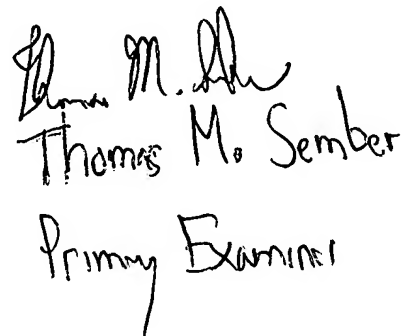 Thomas M.
Thomas M. Sember
Primary Examiner